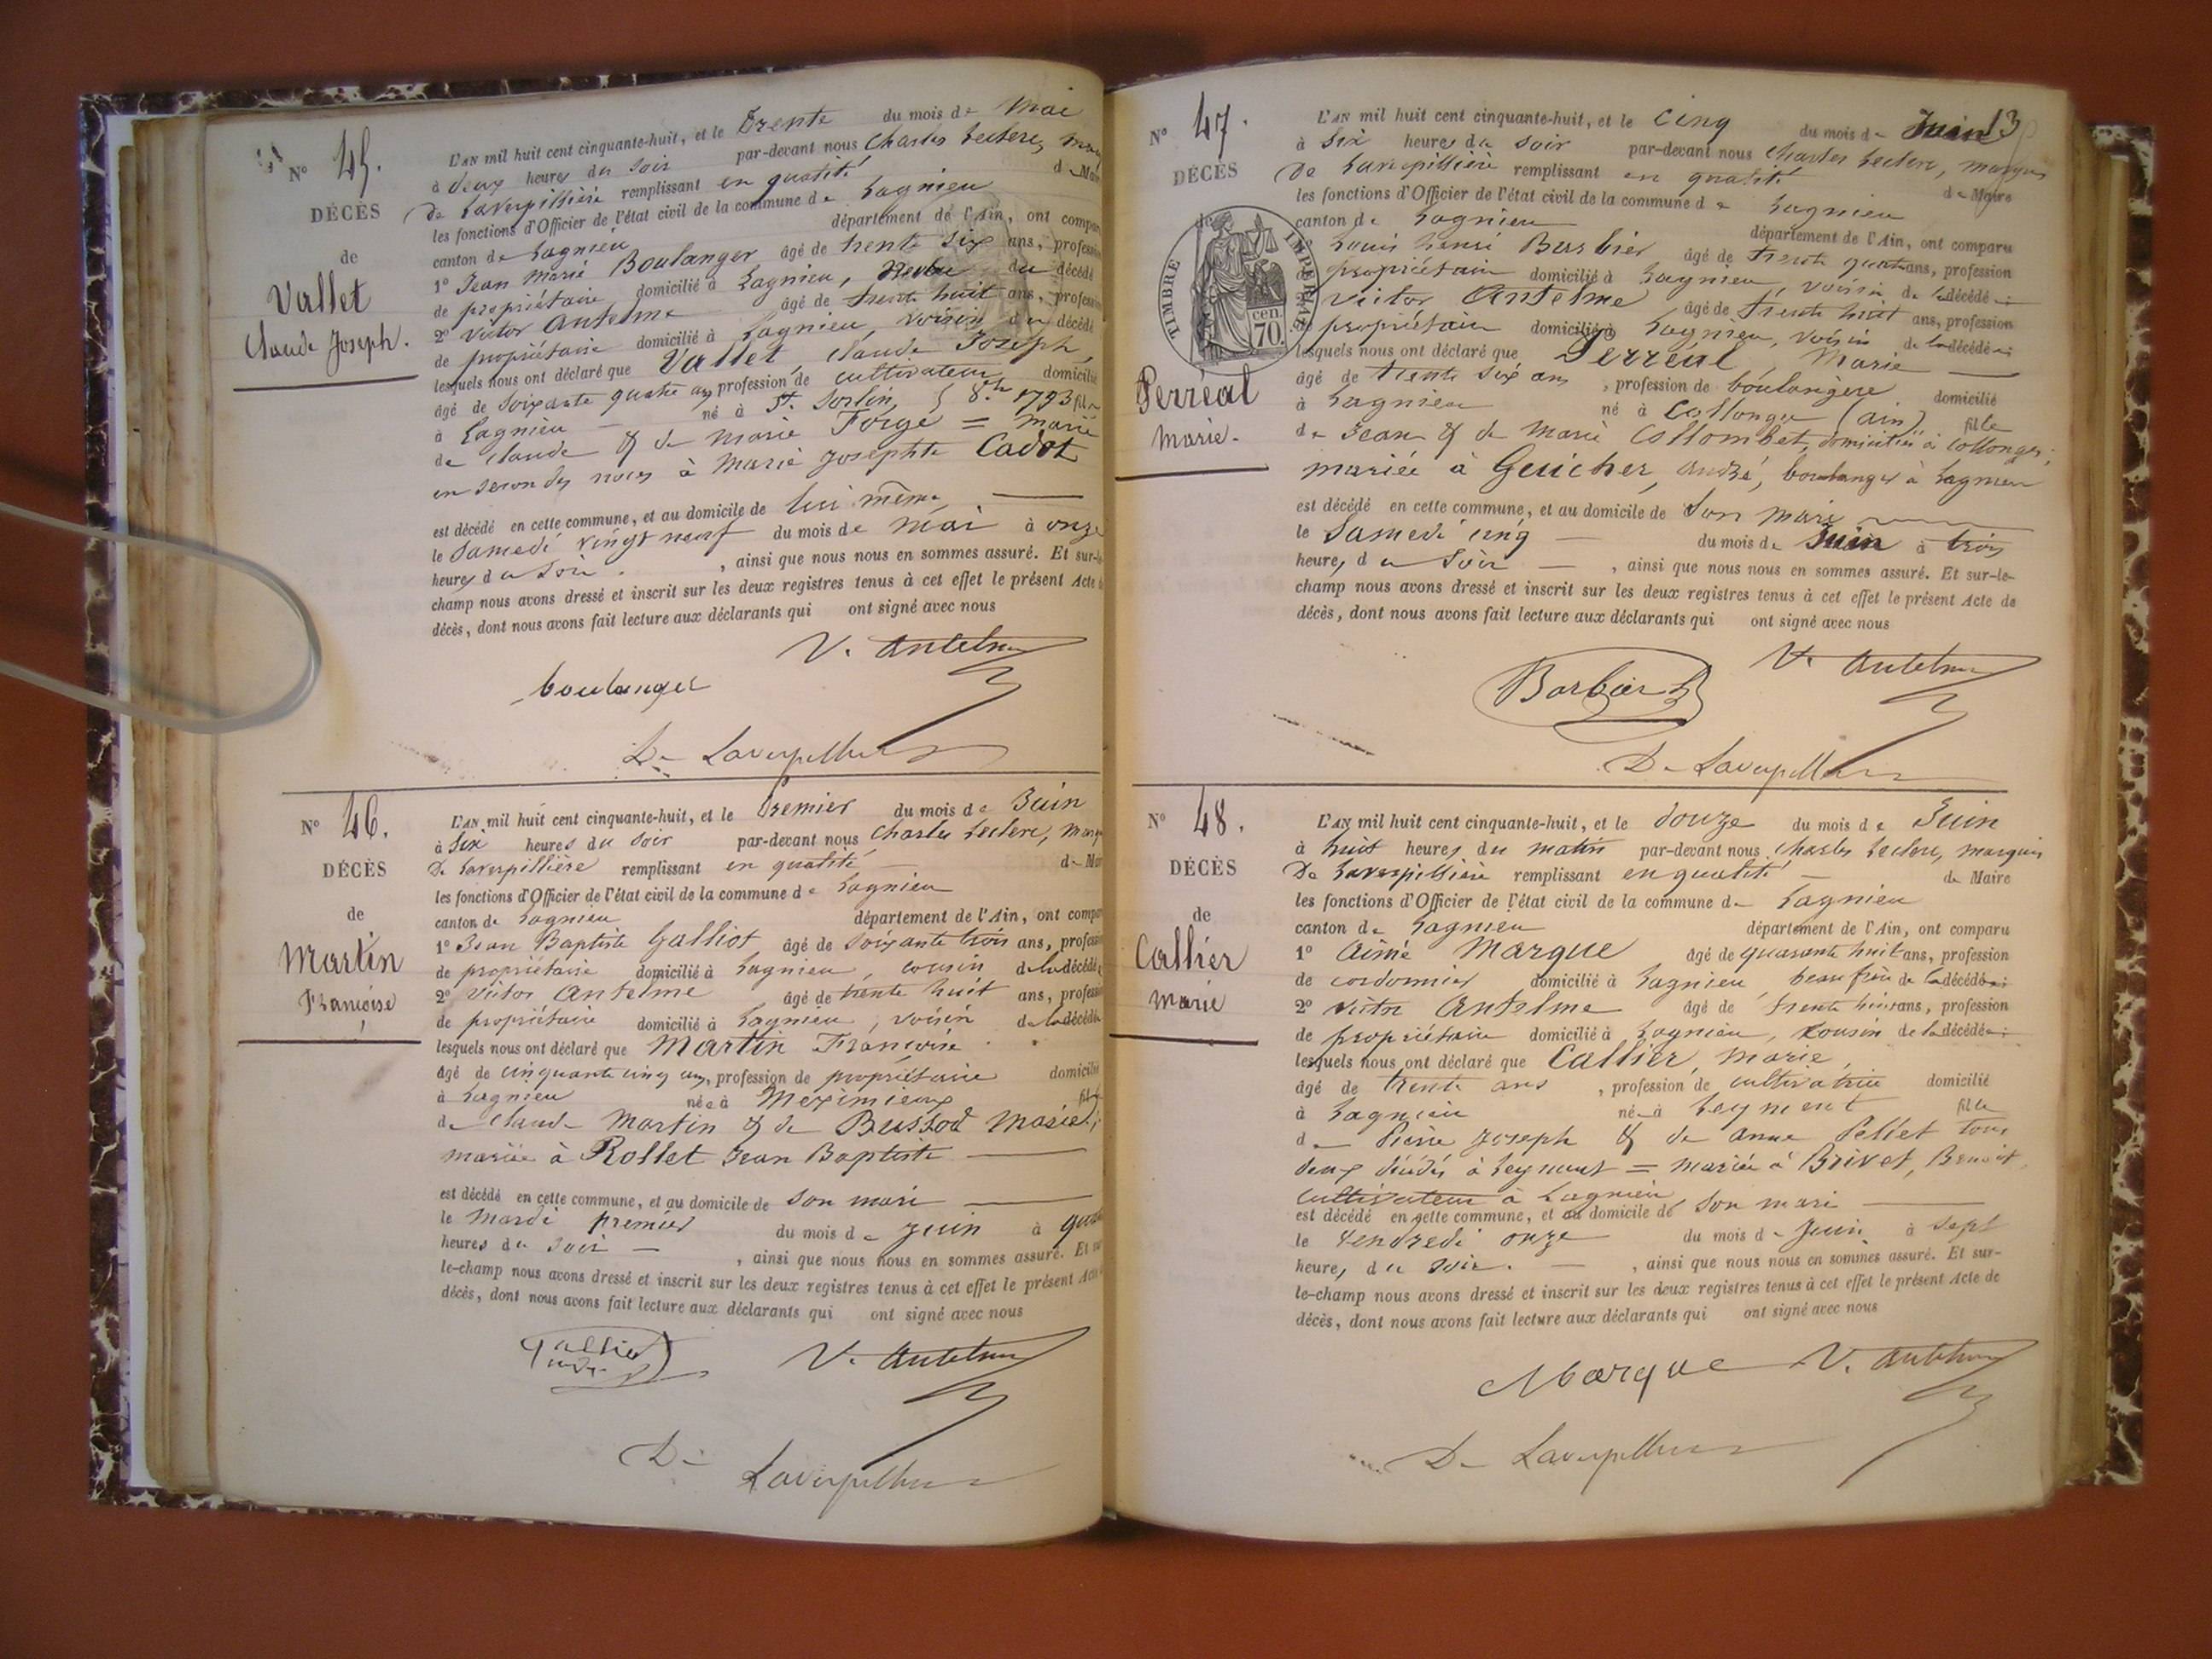 N° 45.
DÉCÈS
de
Vallet
Claude Joseph.
L'AN mil huit cent cinquante-huit, et le Trente du mois de Mai
à deux heures du soir par-devant nous Charles Leclerc,
De Laverpillière remplissant en qualité de
les fonctions d'Officier de l'état civil de la commune de Lagnieu
canton de Lagnieu département de l'Ain, ont
1° Jean Marie Boulanger âgé de trente six ans,
de propriétaire domicilié à Lagnieu, neveu du décédé
2° Victor Antelme âgé de trente huit ans,
de propriétaire domicilié à Lagnieu, voisin du décédé
lesquels nous ont déclaré que Vallet, Claude Joseph,
âgé de soixante quatre ans profession de cultivateur domicilié
à Lagnieu né à St. Sorlin, 8bre 1793 fils
de Claude & de Marie Forge = marié
en secondes noces à Marie Josephte Cadot
est décédé en cette commune, et au domicile de lui même
le Samedi vingt neuf du mois de Mai à onze
heures du soir. , ainsi que nous nous en sommes assuré. Et sur-le-
champ nous avons dressé et inscrit sur les deux registres tenus à cet effet le présent Acte
décès, dont nous avons fait lecture aux déclarants qui ont signé avec nous
V. Antelme
boulanger
De Laverpillière
N° 46.
DÉCÈS
de
Martin
Françoise
L'AN mil huit cent cinquante-huit, et le Premier du mois de Juin
à Six heures du soir par-devant nous Charles Leclerc,
De Laverpillière remplissant en qualité de
les fonctions d'Officier de l'état civil de la commune de Lagnieu
canton de Lagnieu département de l'Ain, ont
1° Jean Baptiste Galliot âgé de soixante trois ans,
de propriétaire domicilié à Lagnieu, cousin de la décédée
2° Victor Antelme âgé de trente huit ans,
de propriétaire domicilié à Lagnieu, voisin de la décédée
lesquels nous ont déclaré que Martin Françoise
âgé de cinquante cinq ans, profession de propriétaire domicilié
à Lagnieu née à Meximieux fille
de Claude Martin & de Bussod Marie;
mariée à Rollet Jean Baptiste
est décédé en cette commune, et au domicile de son mari
le Mardi premier du mois de Juin à
heures du soir , ainsi que nous nous en sommes assuré. Et
le-champ nous avons dressé et inscrit sur les deux registres tenus à cet effet le présent Acte
décès, dont nous avons fait lecture aux déclarants qui ont signé avec nous
Galliot V. Antelme
De Laverpillière
13
N° 47.
DÉCÈS
de
TIMBRE IMPERIAL
cen.
70.
Perréal
Marie.
L'AN mil huit cent cinquante-huit, et le Cinq du mois de Juin
à Six heures du soir par-devant nous Charles Leclerc, marquis
De Laverpillière remplissant en qualité de Maire
les fonctions d'Officier de l'état civil de la commune de Lagnieu
canton de Lagnieu département de l'Ain, ont comparu
Louis henri Barbier âgé de trente quatre ans, profession
de propriétaire domicilié à Lagnieu, voisin de la décédée
Victor Antelme âgé de trente huit ans, profession
de propriétaire domicilié à Lagnieu, voisin de la décédée
lesquels nous ont déclaré que Perréal, Marie
âgé de trente six ans , profession de boulangère domicilié
à Lagnieu né à Collonges (ain) fille
de Jean & de Marie Collombet, domiciliés à Collonges;
mariée à Guicher, André, boulanger à Lagnieu
est décédé en cette commune, et au domicile de son mari
le Samedi cinq du mois de Juin à trois
heures du soir , ainsi que nous nous en sommes assuré. Et sur-le-
champ nous avons dressé et inscrit sur les deux registres tenus à cet effet le présent Acte de
décès, dont nous avons fait lecture aux déclarants qui ont signé avec nous
Barbier V. Antelme
De Laverpillière
N° 48.
DÉCÈS
de
Callier
Marie
L'AN mil huit cent cinquante-huit, et le douze du mois de Juin
à huit heures du matin par-devant nous Charles Leclerc, marquis
De Laverpillière remplissant en qualité de Maire
les fonctions d'Officier de l'état civil de la commune de Lagnieu
canton de Lagnieu département de l'Ain, ont comparu
1° Aimé Marque âgé de quarante huit ans, profession
de cordonnier domicilié à Lagnieu, beau frère de la décédée
2° Victor Antelme âgé de trente huit ans, profession
de propriétaire domicilié à Lagnieu, cousin de la décédée
lesquels nous ont déclaré que Callier, Marie,
âgé de trente ans , profession de cultivatrice domicilié
à Lagnieu née à Leyment fille
de Pierre Joseph & de Anne Peliet tous
deux décédés à Leyment = mariée à Brivet, Benoit,
cultivateur à Lagnieu
est décédé en cette commune, et au domicile de son mari
le Vendredi onze du mois de Juin à sept
heures du soir. , ainsi que nous nous en sommes assuré. Et sur-
le-champ nous avons dressé et inscrit sur les deux registres tenus à cet effet le présent Acte de
décès, dont nous avons fait lecture aux déclarants qui ont signé avec nous
Marque V. Antelme
De Laverpillière